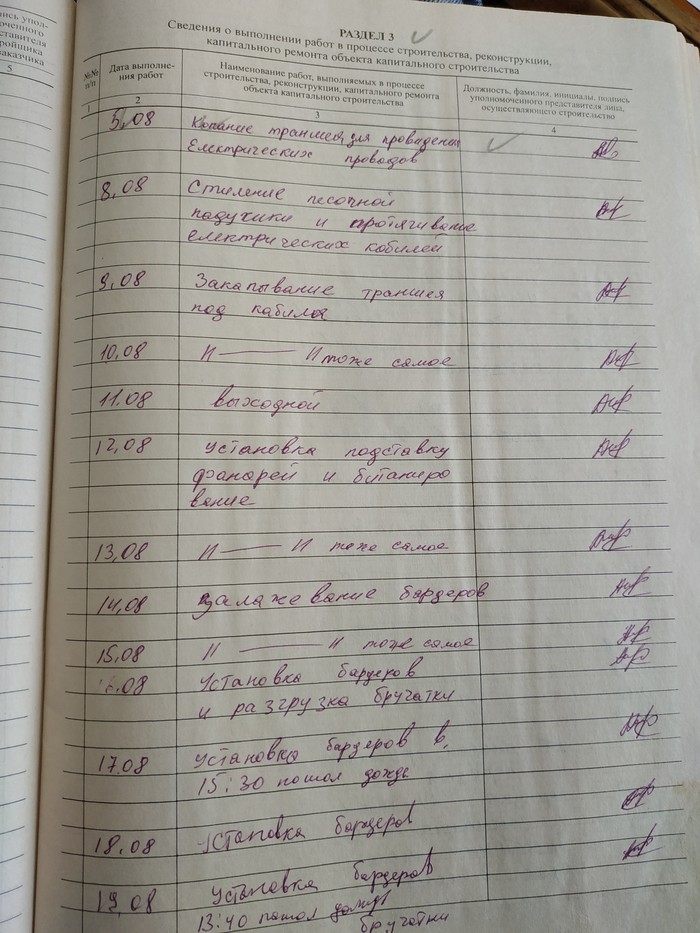 РАЗДЕЛ 3
Сведения о выполнении работ в процессе строительства, реконструкции,
капитального ремонта объекта капитального строительства
5
№№
п/п
Дата выполне-
ния работ
Наименование работ, выполняемых в процессе
строительства, реконструкции, капитального ремонта
объекта капитального строительства
Должность, фамилия, инициалы, подпись
уполномоченного представителя лица,
осуществляющего строительство
1 2 3 4
5,08 Копание траншея для проведения
Електрических проводов
8,08 Стиление песочной
падушки и протягивание
електрических кобилеи
9,08 Закапывание траншея
под кабиля
10,08 II —— II тоже самое
11.08 выходной
12,08 установка подставку
фанарей и битаниро
вание
13,08 II —— II тоже самое
14,08 залажевание бардеров
15,08 II —— II тоже самое
16.08 установка бардеров
и разгрузка бручатки
17.08 установка бардеров в,
15:30 пошол дожде
18.08 установка бардеров
19,08 установка бардеров
13:40 пошол
бручатки